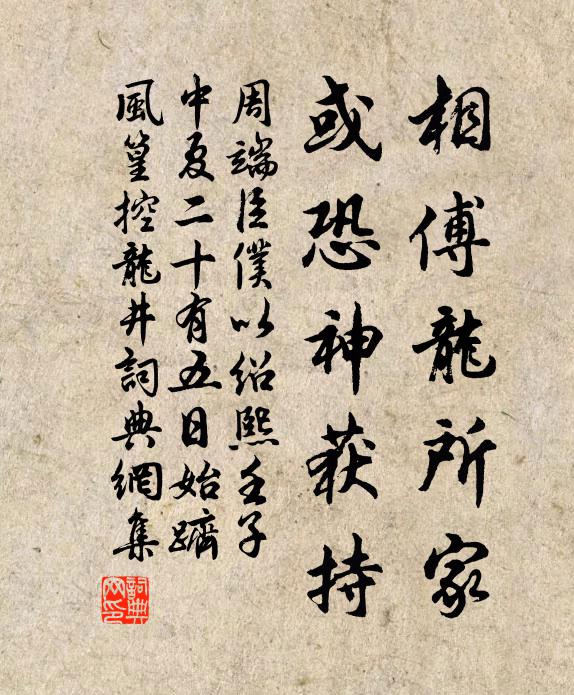 相傅龍所家
或恐神荻持
周端臣僕以紹熙壬子
中夏二十有五日始躋
風篁控龍井詞典網集
詞典
网印